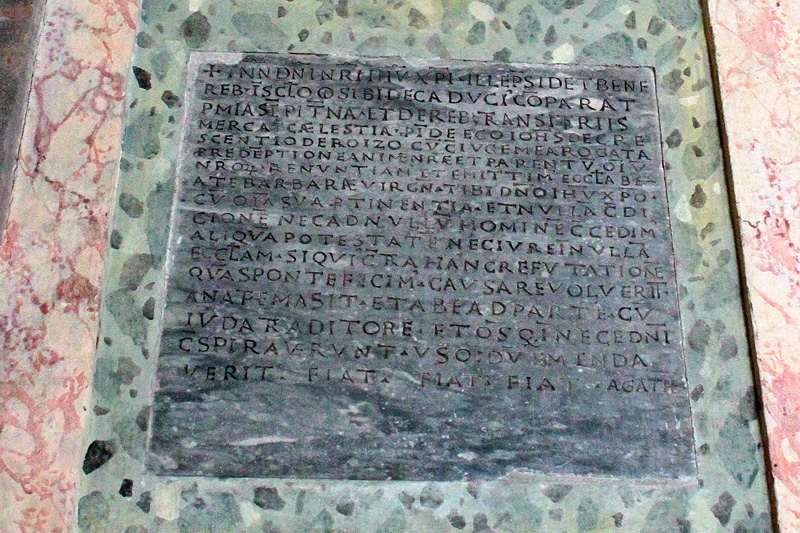 † INNDNINRIIHUXPI ILLEPSIDETBENE
REB ISCLO SIBIDECADUCICOPARAT
PMIASEPITNA ET DEREB TRANSITRIIS
MERCAT CÆLESTIA PTDE EGO IOHS DE CRE
SCENTIO DEROIZO CUCIUGEMEAROGATA
PREDEPTIONEANIMENRÆETPARENTU
NROR RENUNTIAM ETEMITTIM ECCLA BE
ATEBARBARÆVIRGN TIBIDNOIHUXPO
CUOIASUAPTINENTIA ETNULLACDI
CIONE NECADNULLU HOMINECCEDIM
ALIQUAPOTESTATE NECIUREINULLA
ECCLAM SIQUICTRAHANCREFUTATIONE
QUASPONTEFECIM CAUSAREUOLUERIT
ANATEMASIT ETABEADPARTE CU
IUDATRADITORE ETOSQINECEDNI
CSPIRAUERUNT USQ DUEMENDA
UERIT FIAT FIAT FIAT AGATTE